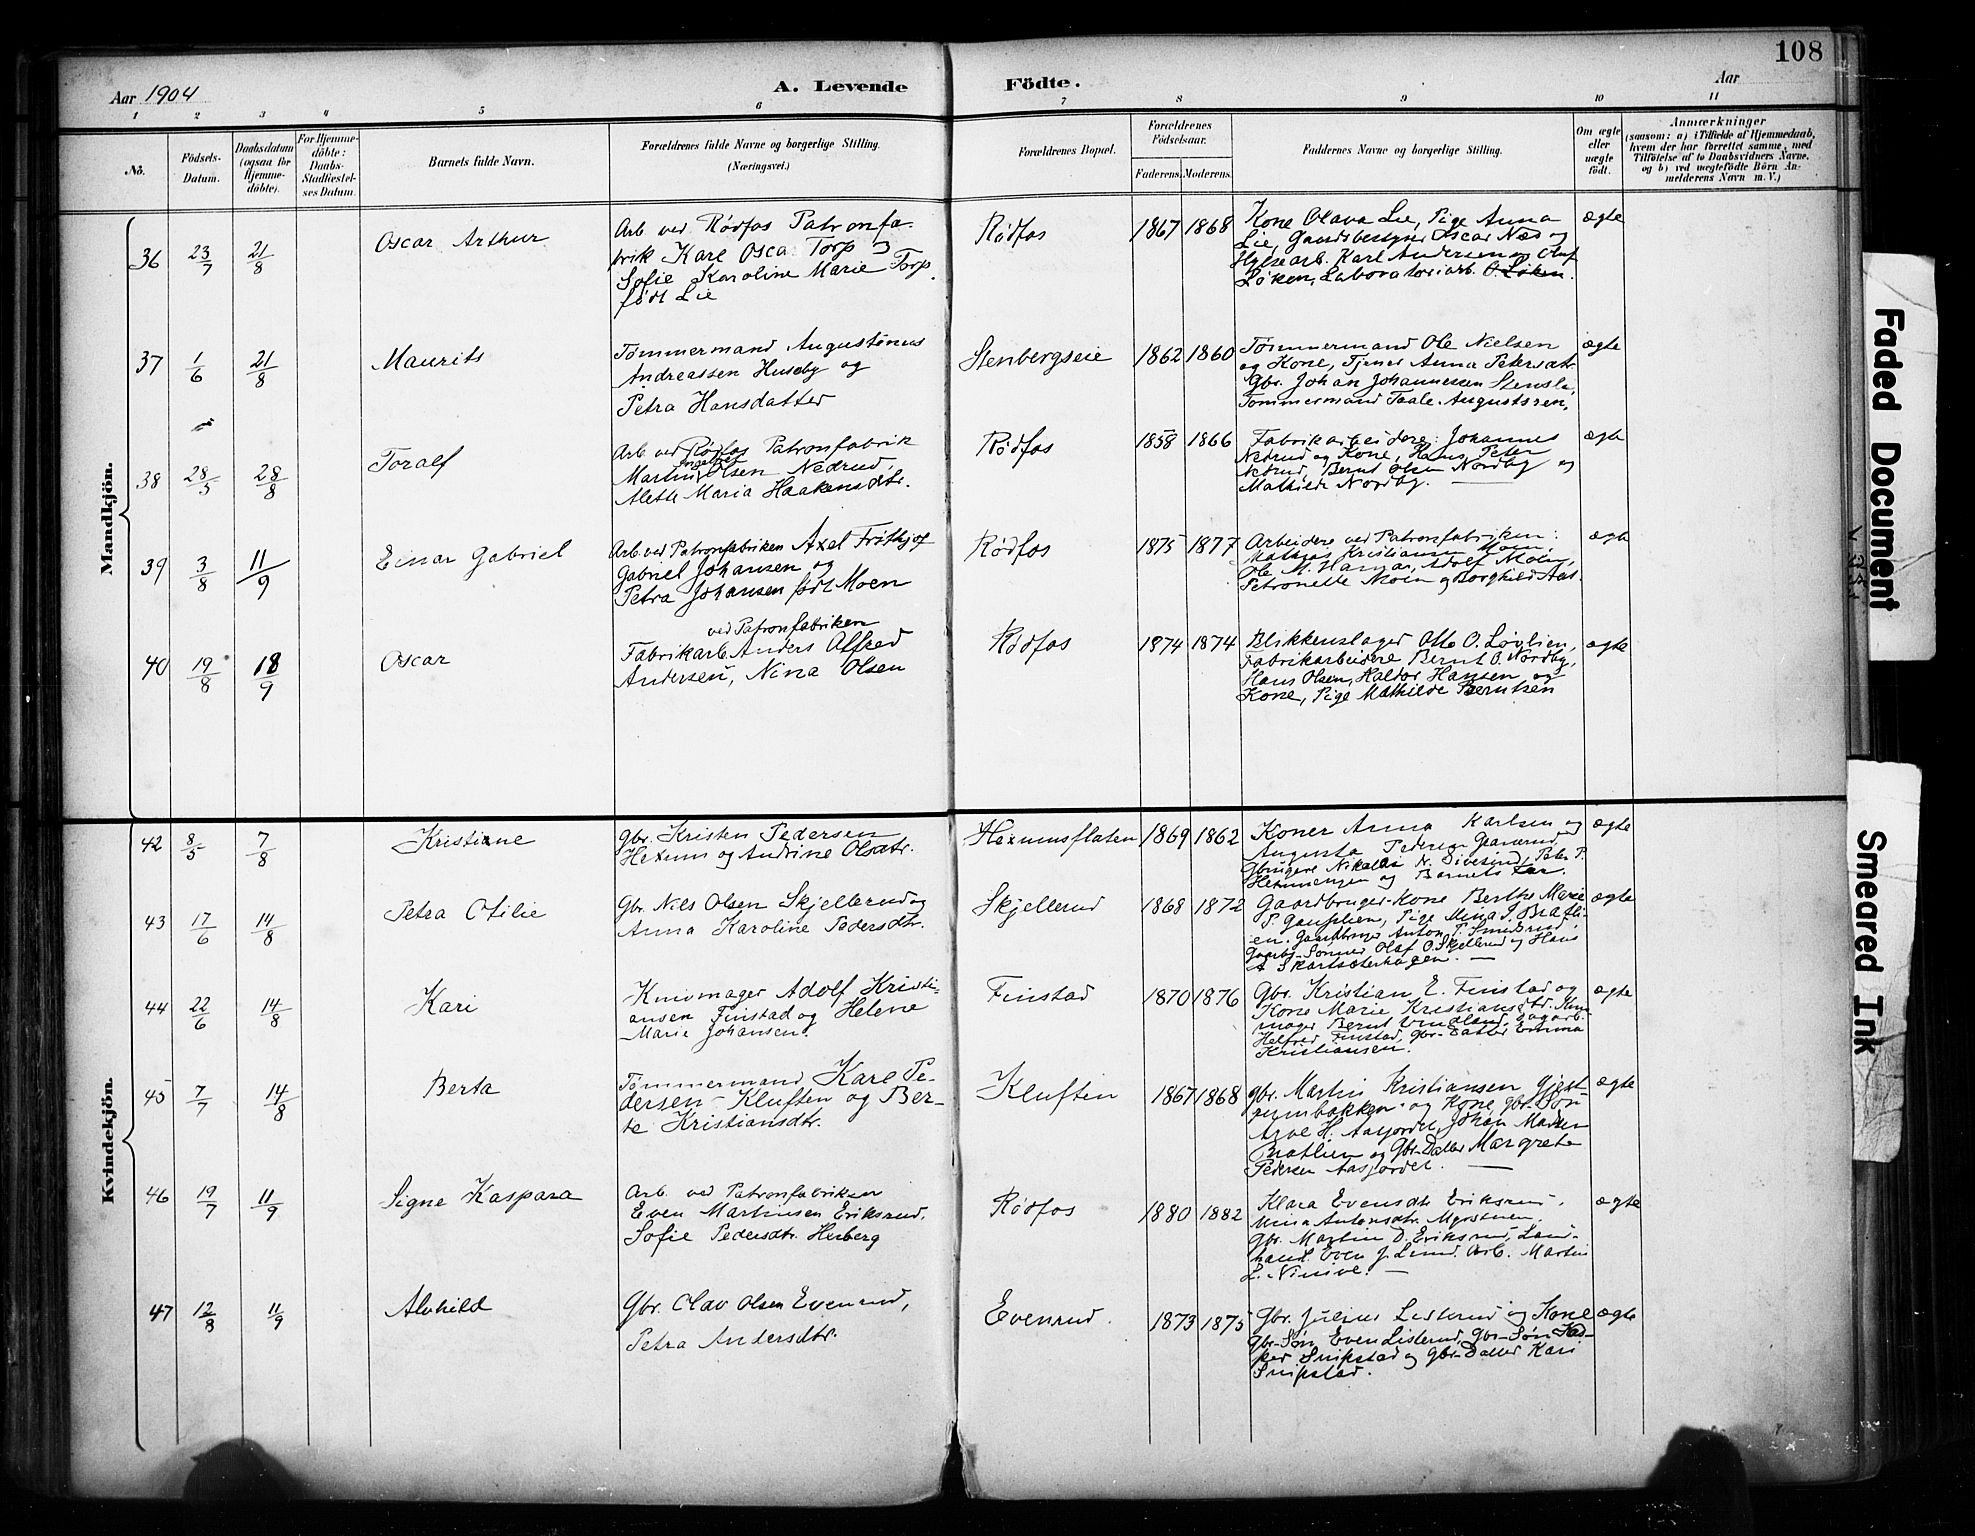 108
Aar 1904
A. Levende Födte.
Aar
1 2 3 4 5 6 7 8 9 10 11
No.
Födsels-
Datum.
Daabsdatum
(ogsaa for
Hjemme-
döbte).
For Hjemme-
döbte:
Daabs-
Stadfæstel-
ses Datum.
Barnets fulde Navn.
Forældrenes fulde Navne og borgerlige Stilling.
(Næringsvei.)
Forældrenes Bopæl.
Forældrenes
Födselsaar.
Faderens. Moderens.
Faddernes Navne og borgerlige Stilling.
Om ægte
eller
uægte
födt.
Anmærkninger
(saasom: a) i Tilfælde af Hjemmedaab,
hvem der har forrettet samme, med
Tilföielse af to Daabsvidners Navne,
og b) ved uægtefödte Börn An-
melderens Navn m. V.)
Mandkjön.
36 23/7 21/8 Oscar Arthur
Arb. ved Rødfos Patronfa-
brik Karl Osca. Torp
Sofie Karoline Marie Torp
født Lie
Rødfos 1867 1868
Kone Olava Lie, Pige Anna
Lie, Gaardsbestyrer Oscar Næs og
Hylsearb. Karl Andersen og Oluf
Løken, Laboratoriarb. O. Løken.
ægte
37 1/6 21/8 Maurits
Tømmermand Augustinus
Andreassen Huseby og
Petra Hansdatter
Stenbergseie 1862 1860
Tømmermand Ole Nielsen
og Kone, Tjener Anna Petersdtr.
Gbr. Johan Johannessen Stensli,
Tømmermand Paale Augustsen,
ægte
38 28/5 28/8 Toralf
Arb. ved Rødfos Patronfabrik
Martin Olsen Nedrud,
Alette Maria Haakensdtr.
Rødfos 1858 1866
Fabrikarbeidere: Johannes
Nedrud og Kone, Hans Peter
Nedrud, Bernt Olsen Nordby og
Mathilde Nordby.
ægte
39 3/8 11/9 Einar Gabriel
Arb. ved Patronfabriken Axel Frithjof
Gabriel Johansen og
Petra Johansen født Moen
Rødfos 1875 1877
Arbeidere ved Patronfabriken:
Mathias Kristiansen Moen,
Ole M. Hamar, Adolf Moen,
Petronelle Moen og Borghild Aas.
ægte
40 19/8 18/9 Oscar
ved Patronfabriken
Fabrikarb. Anders Alfred
Andersen, Nina Olsen
Rødfos 1874 1874
Blikkenslager Otto O. Løvlien,
Fabrikarbeidere Bernt O. Nordby,
Hans Olsen, Haldor Hansen og
Kone, Pige Mathilde Berntsen
ægte
Kvindekjön.
42 8/5 7/8 Kristine
Gbr. Kristen Pedersen
Hexum og Andrine Olsdtr.
Hexumsflaten 1869 1862
Koner Anna Karlsen og
Augusta Pedersen Granerud,
Gbrugere Nikolai N. Sivesind, Peter P.
Hexumengen og Barnets Far.
ægte
43 17/6 14/8 Petra Otilie
Gbr. Nils Olsen Skjellerud og
Anna Karoline Pedersdtr.
Skjellerud 1868 1872
Gaardbruger-Kone Berthe Marie
P. Gaustien, Pige Mina J. Bratli-
en. Gaardbruger Anton P. Smebrud,
Gaardbr.-Sønner Olaf O. Skjellerud og Hans
A. Skartsæterhagen.
ægte
44 22/6 14/8 Kari
Knivmager Adolf Kristi-
ansen Finstad og Helene
Marie Johansen.
Finstad 1870 1876
Gbr. Kristian E. Finstad og
Kone Marie Kristiansdtr. Kniv-
mager Bernt Vindland, Sagarb.
Helfred Finstad, Gbr.-Datter Emma
Kristiansen.
ægte
45 7/7 14/8 Berta
Tømmermand Karl Pe-
dersen Kluften og Ber-
te Kristiansdtr.
Kluften 1867 1868
Gbr. Martin Kristiansen Gjest-
rumbakken og Kone, Gbr.-Søn
Arne H. Aasjordet, Johan Madsen
Bratlien og Gbr-Datter Margrete
Pedersen Aasjordet.
ægte
46 19/7 11/9 Signe Kaspara
Arb. ved Patronfabriken
Even Martinsen Eriksrud,
Sofie Pedersdtr. Herberg
Rødfos 1880 1882
Klara Evensdtr. Eriksrud,
Mina Antonsdtr. Myrstuen,
Gbr. Martin D. Eriksrud, Land-
hand. Even J. Lund. Arb. Martin
L. Ninive.
ægte
47 12/8 11/9 Alvhild
Gbr. Olav Olsen Evenrud,
Petra Andersdtr.
Evenrud. 1873 1875
Gbr. Julius Listerud og Kone
Gbr-Søn Even Listerud, Gbr-Søn Kas-
per Snipstad og Gbr-Datter Kari
Snipstad.
ægte
Faded Document
Smeared Ink